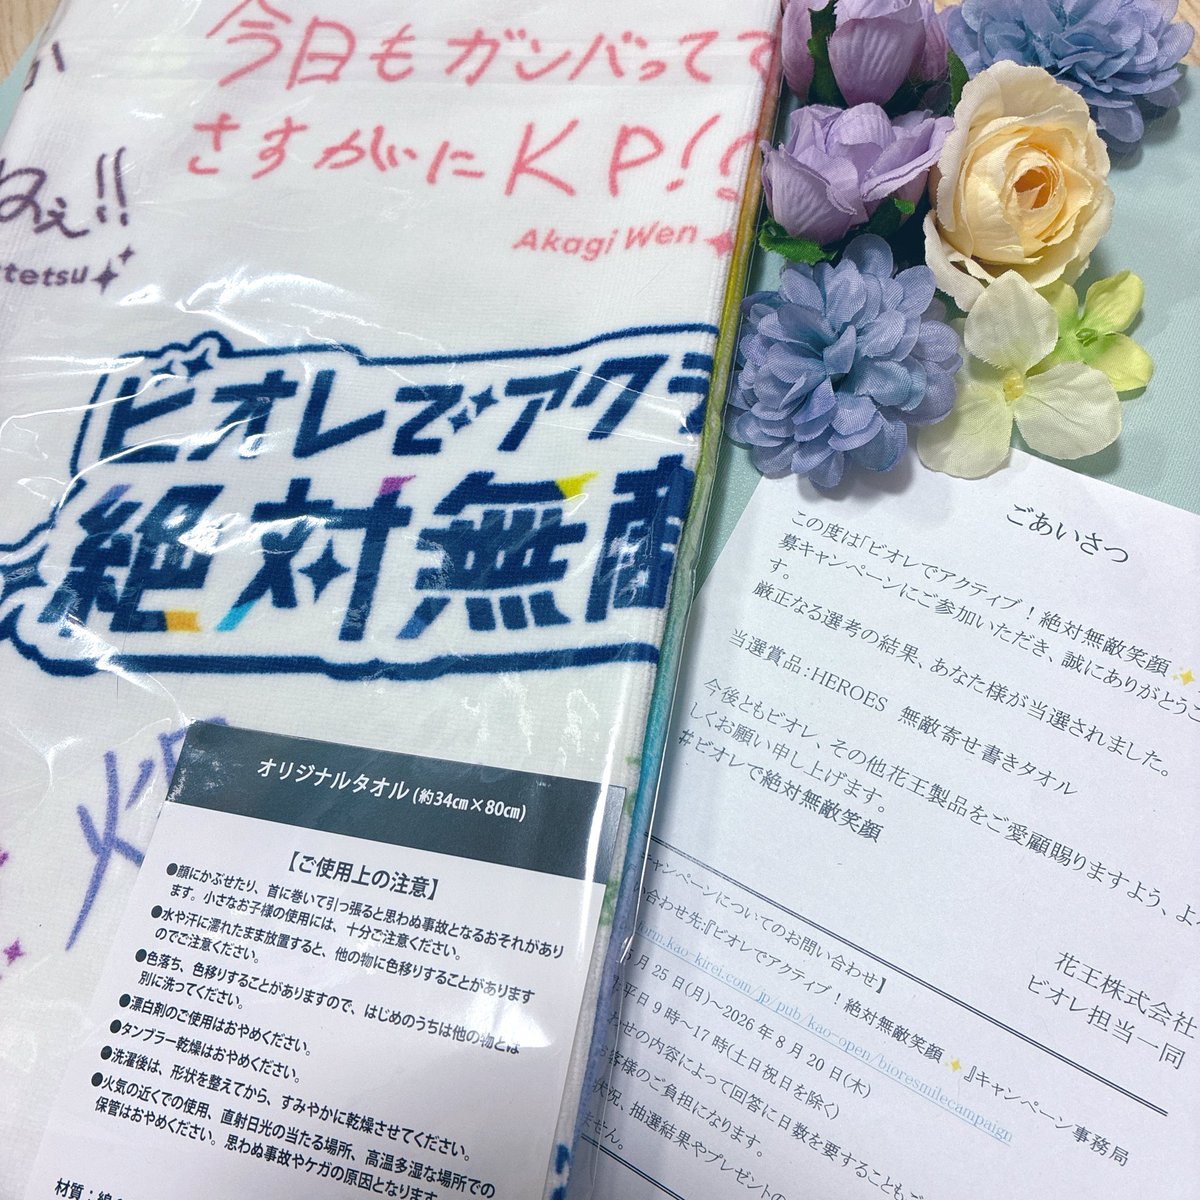 今日もガンバってて
さすがにKP!!
Akagi Wen
ねぇ!!
tetsu
ビオレでアクラ
絶対無敵
オリジナルタオル (約34㎝×80㎝)
【ご使用上の注意】
●顔にかぶせたり、首に巻いて引っ張ると思わぬ事故となるおそれがあり
ます。小さなお子様の使用には、十分ご注意ください。
●水や汗に濡れたまま放置すると、他の物に色移りすることがあります
のでご注意ください。
●色落ち、色移りすることがありますので、はじめのうちは他の物とは
別に洗ってください。
●漂白剤のご使用はおやめください。
●タンブラー乾燥はおやめください。
●洗濯後は、形状を整えてから、すみやかに乾燥させてください。
●火気の近くでの使用、直射日光の当たる場所、高温多湿な場所での
保管はおやめください。思わぬ事故やケガの原因となります。
材質:綿
ごあいさつ
この度は「ビオレでアクティブ!絶対無敵笑顔✨
募キャンペーンにご参加いただき、誠にありがとうご
す。
厳正なる選考の結果、あなた様が当選されました。
当選賞品:HEROES 無敵寄せ書きタオル
今後ともビオレ、その他花王製品をご愛顧賜りますよう、よろ
しくお願い申し上げます。
#ビオレで絶対無敵笑顔
花王株式会社
ビオレ担当一同
キャンペーンについてのお問い合わせ】
い合わせ先:『ビオレでアクティブ!絶対無敵笑顔✨』キャンペーン事務局
form.kao-kirei.com/jp/pub/kao-open/bioresmilecampaign
月 25 日(月)~2026 年 8 月 20 日(木)
平日 9 時~17 時(土日祝日を除く)
わせの内容によって回答に日数を要することもご
お客様のご負担になります。
状況、抽選結果やプレゼントの
ません。